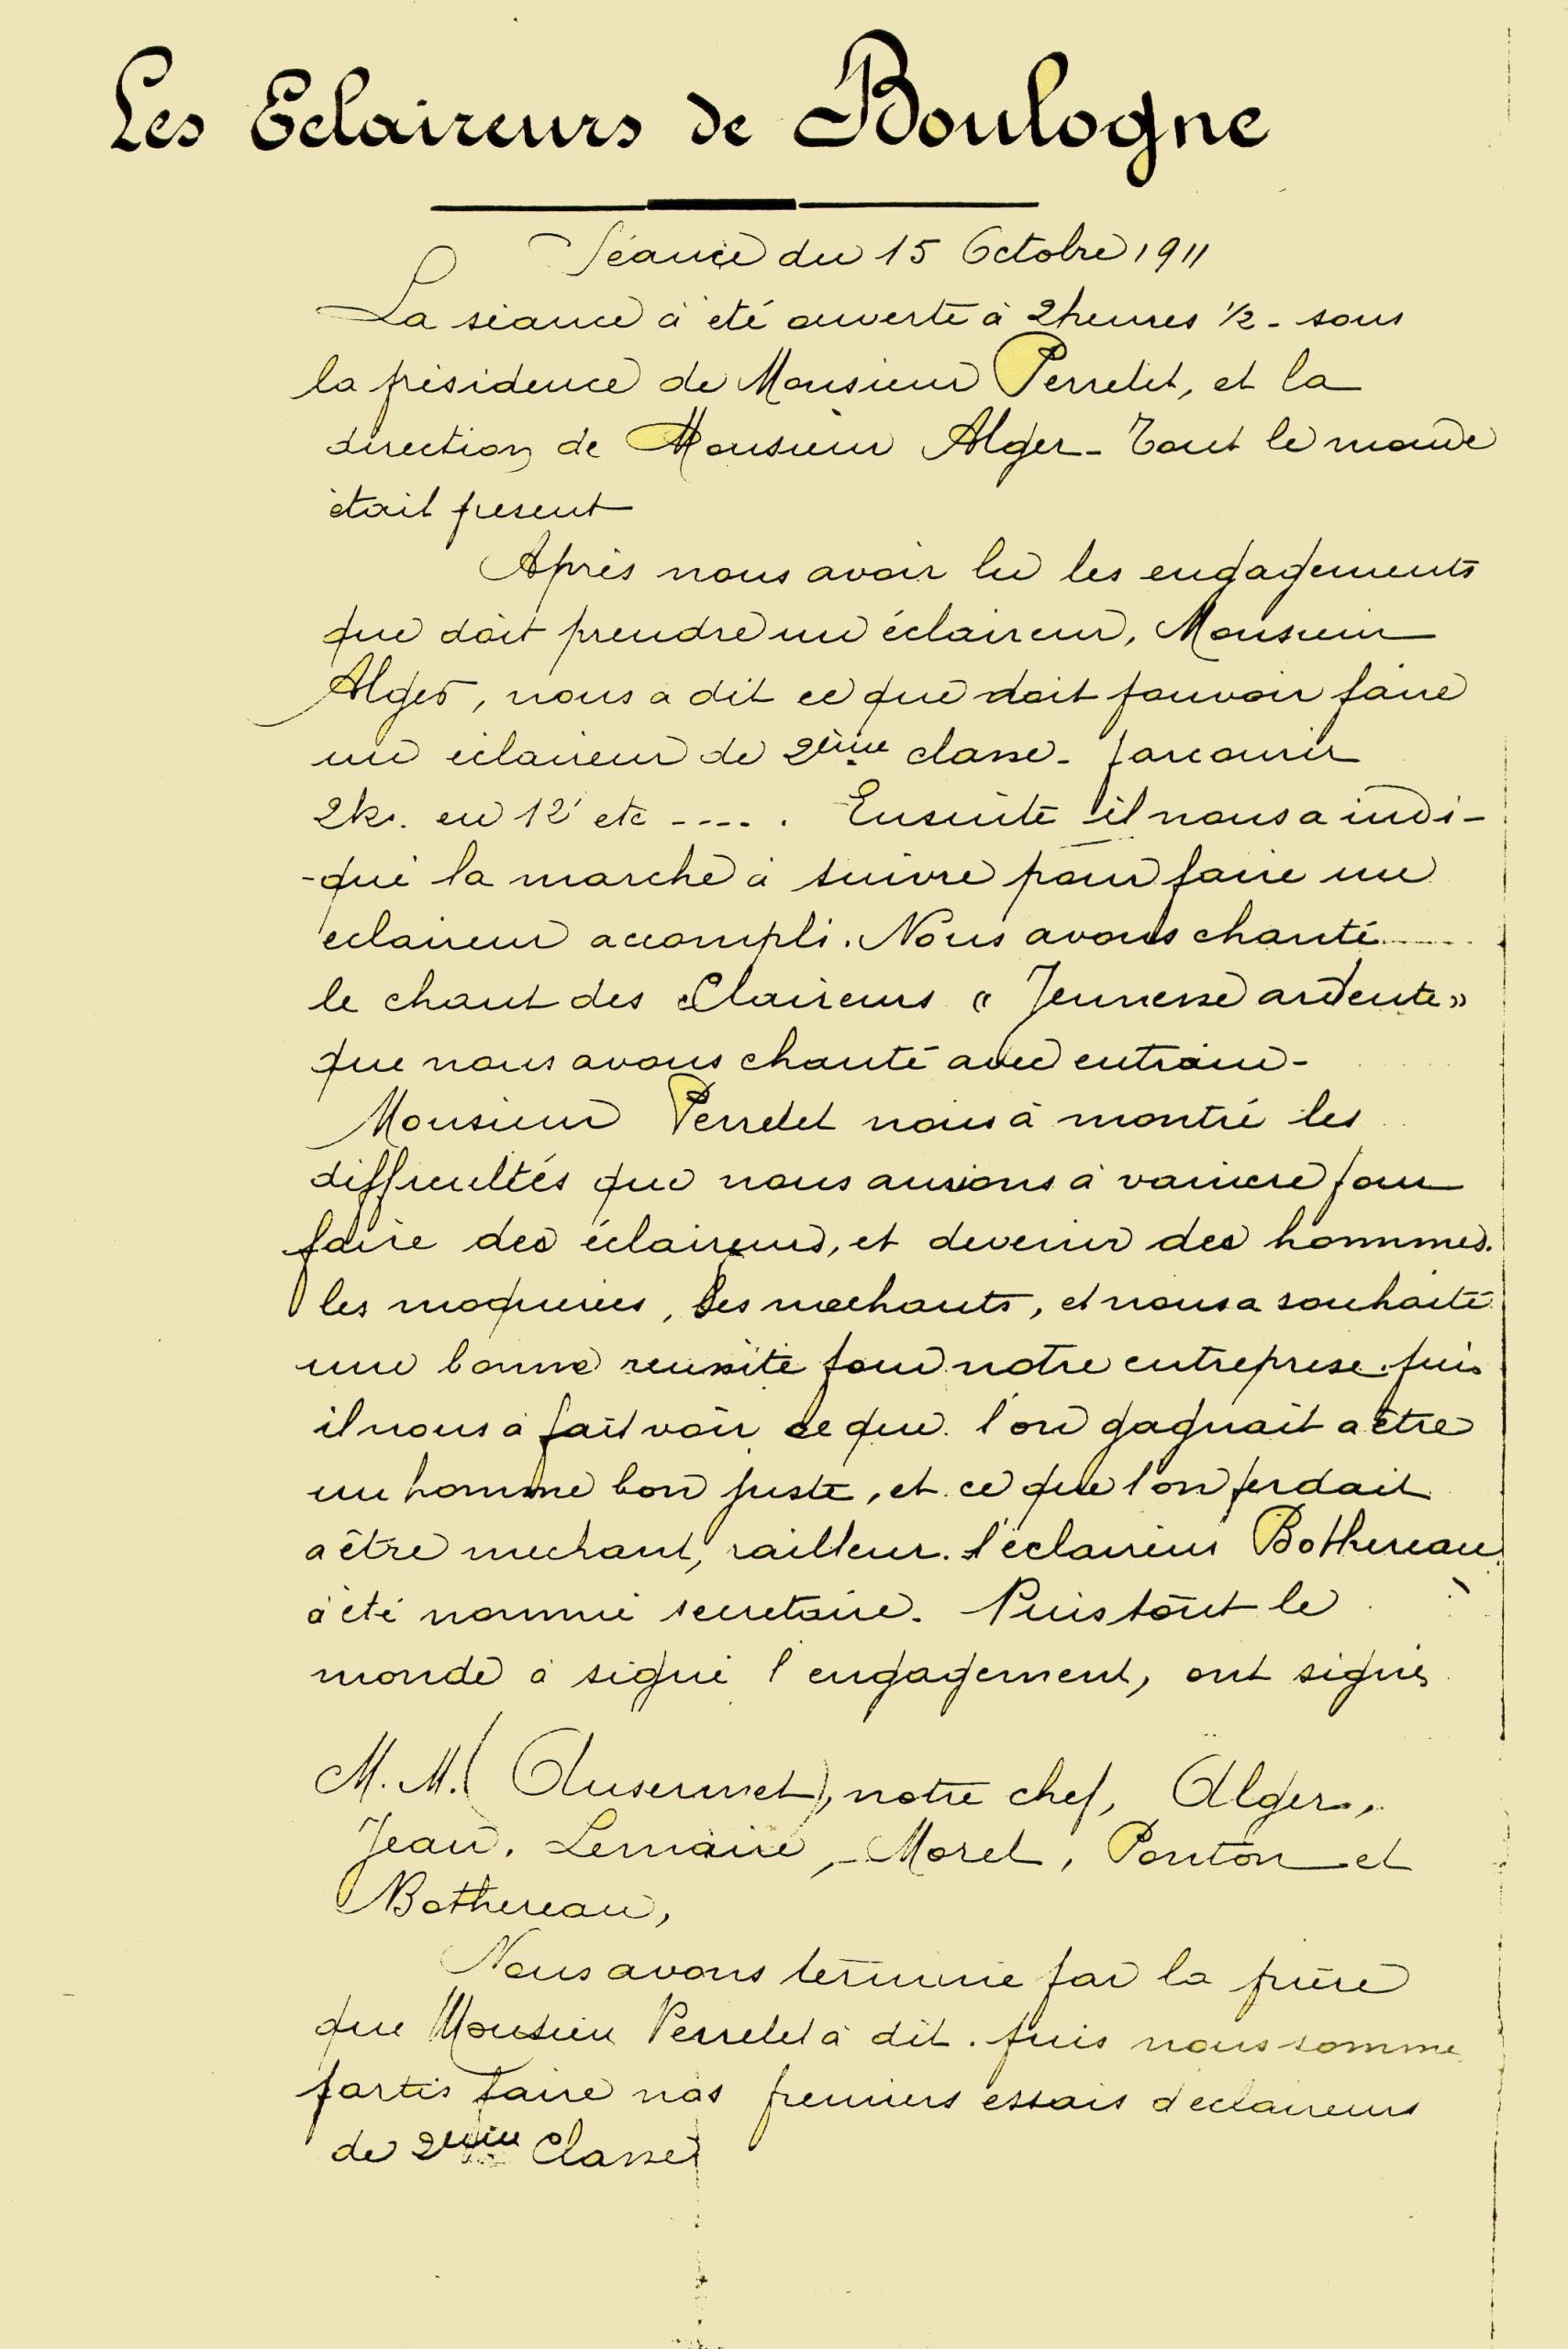 Les Eclaireurs de Boulogne
Séance du 15 Octobre 1911
La séance à été ouverte à 2 heures ½ - sous
la présidence de Monsieur Perrelet, et la
direction de Monsieur Alger - Tout le monde
était present
Après nous avoir lu les engagements
que doit prendre un éclaireur, Monsieur
Alger, nous a dit ce que doit pouvoir faire
un éclaireur de 2ème classe - parcourir
2k. en 12' etc ---- . Ensuite il nous a indi-
-qué la marche à suivre pour faire un
éclaireur accompli. Nous avons chanté
le chant des eclaireurs « Jeunesse ardente »
que nous avons chanté avec entrain -
Monsieur Perrelet nous à montré les
difficultés que nous aurions à vaincre pour
faire des éclaireurs, et devenir des hommes.
les moqueries, les mechants, et nous a souhaité
une bonne reussite pour notre entreprise. puis
il nous à fait voir ce que l'on gagnait a être
un homme bon juste, et ce que l'on perdait
a être mechant, railleur. l'eclaireur Bothereau
à été nommé secretaire. Puis tout le
monde à signé l'engagement, ont signés
M. M. ( Ansermet), notre chef, Alger,
Jean, Lemaire, - Morel, Ponton et
Bothereau,
Nous avons terminé par la prière
que Monsieur Perrelet à dit. puis nous somme
partis faire nos premiers essais d'eclaireurs
de 2ème Classe